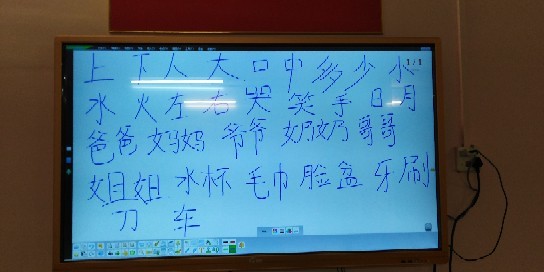 上 下 人 大 口 中 多 少 小
水 火 左 右 哭 笑 手 日 月
爸爸 妈妈 爷爷 奶奶 哥哥
姐姐 水杯 毛巾 脸盆 牙刷
刀 车
1/1